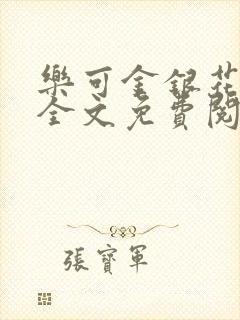 樂可金銀花
全文免費閱
張寶軍